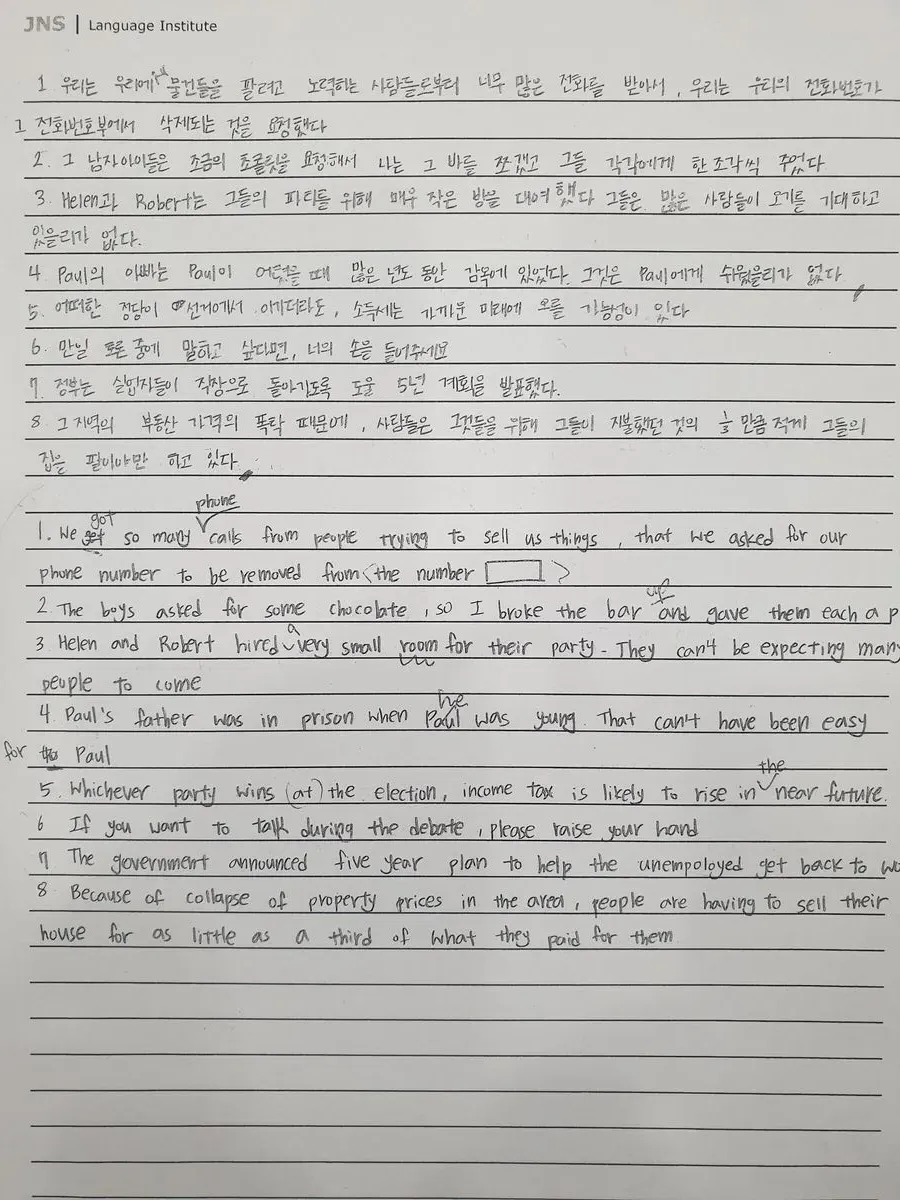 JNS | Language Institute
1 우리는 우리에게 물건들을 팔려고 노력하는 사람들로부터 너무 많은 전화를 받아서, 우리는 우리의 전화번호가
그 전화번호부에서 삭제되는 것을 요청했다
2. 그 남자아이들은 조금의 초콜릿을 요청해서 나는 그 바를 쪼겠고 그들 각각에게 한 조각씩 주었다
3. Helen과 Robert는 그들의 파티를 위해 매우 작은 방을 대여했다 그들은 많은 사람들이 오기를 기대하고
있을리가 없다.
4 Paul의 아빠는 Paul이 어렸을 때 많은 년도 동안 감옥에 있었다. 그것은 Paul에게 쉬웠을리가 없다
5. 어떠한 정당이 선거에서 이기더라도, 소득세는 가까운 미래에 오를 가능성이 있다
6. 만일 토론 중에 말하고 싶다면, 너의 손을 들어주세요
7. 정부는 실업자들이 직장으로 돌아가도록 도울 5년 계획을 발표했다.
8. 그 지역의 부동산 가격의 폭락 때문에, 사람들은 그것들을 위해 그들이 지불했던 것의 ⅓만큼 적게 그들의
집을 팔아야만 하고 있다.
got phone
1. We get so many calls from people trying to sell us things, that we asked for our
phone number to be removed from <the number >
up
2. The boys asked for some chocolate, so I broke the bar and gave them each a p
a
3 Helen and Robert hired very small room for their party. They can't be expecting many
people to come
he
4. Paul's father was in prison when Paul was young. That can't have been easy
for Paul
the
5. Whichever party wins (at) the election, income tax is likely to rise in near future.
6 If you want to talk during the debate, please raise your hand
7 The government announced five year plan to help the unempoloyed get back to wo
8 Because of collapse of property prices in the area, people are having to sell their
house for as little as a third of what they paid for them